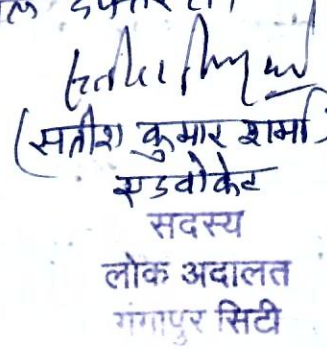 दफ्तर हो।
(सतीश कुमार शर्मा)
एडवोकेट
सदस्य
लोक अदालत
गंगापुर सिटी